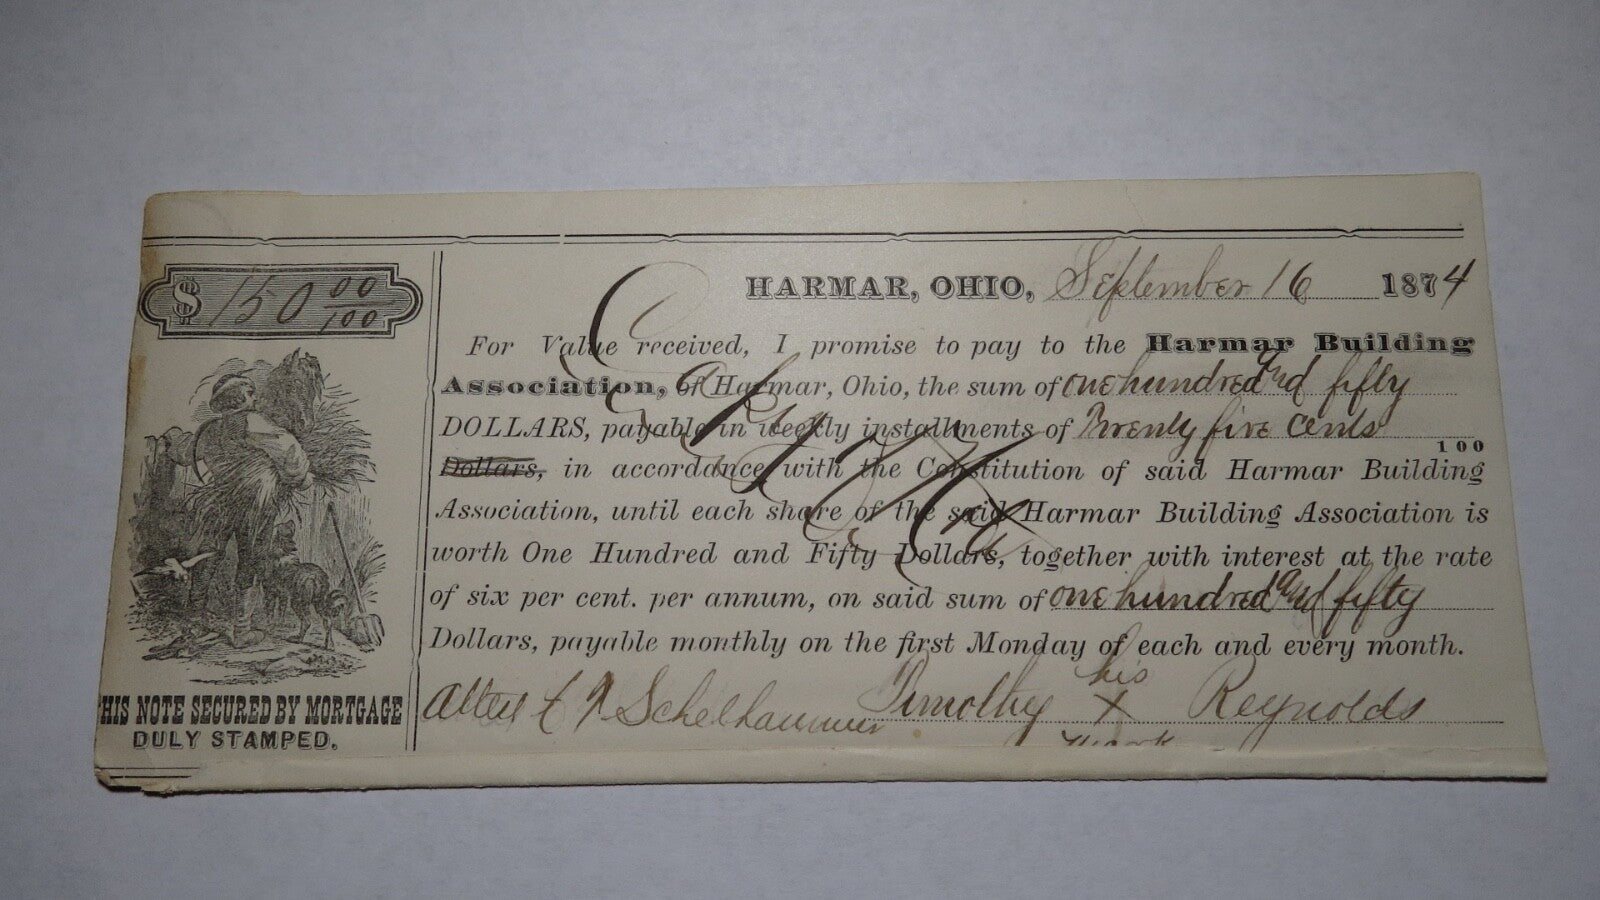 $ 150 00/100
HARMAR, OHIO, September 16 1874
For Value received, I promise to pay to the Harmar Building
Association, of Harmar, Ohio, the sum of one hundred and fifty
DOLLARS, payable in weekly installments of Twenty five cents
100
Dollars, in accordance with the Constitution of said Harmar Building
Association, until each share of the said Harmar Building Association is
worth One Hundred and Fifty Dollars, together with interest at the rate
of six per cent. per annum, on said sum of one hundred and fifty
Dollars, payable monthly on the first Monday of each and every month.
his
Attest Schelhammer Timothy X Reynolds
mark
HIS NOTE SECURED BY MORTGAGE
DULY STAMPED.